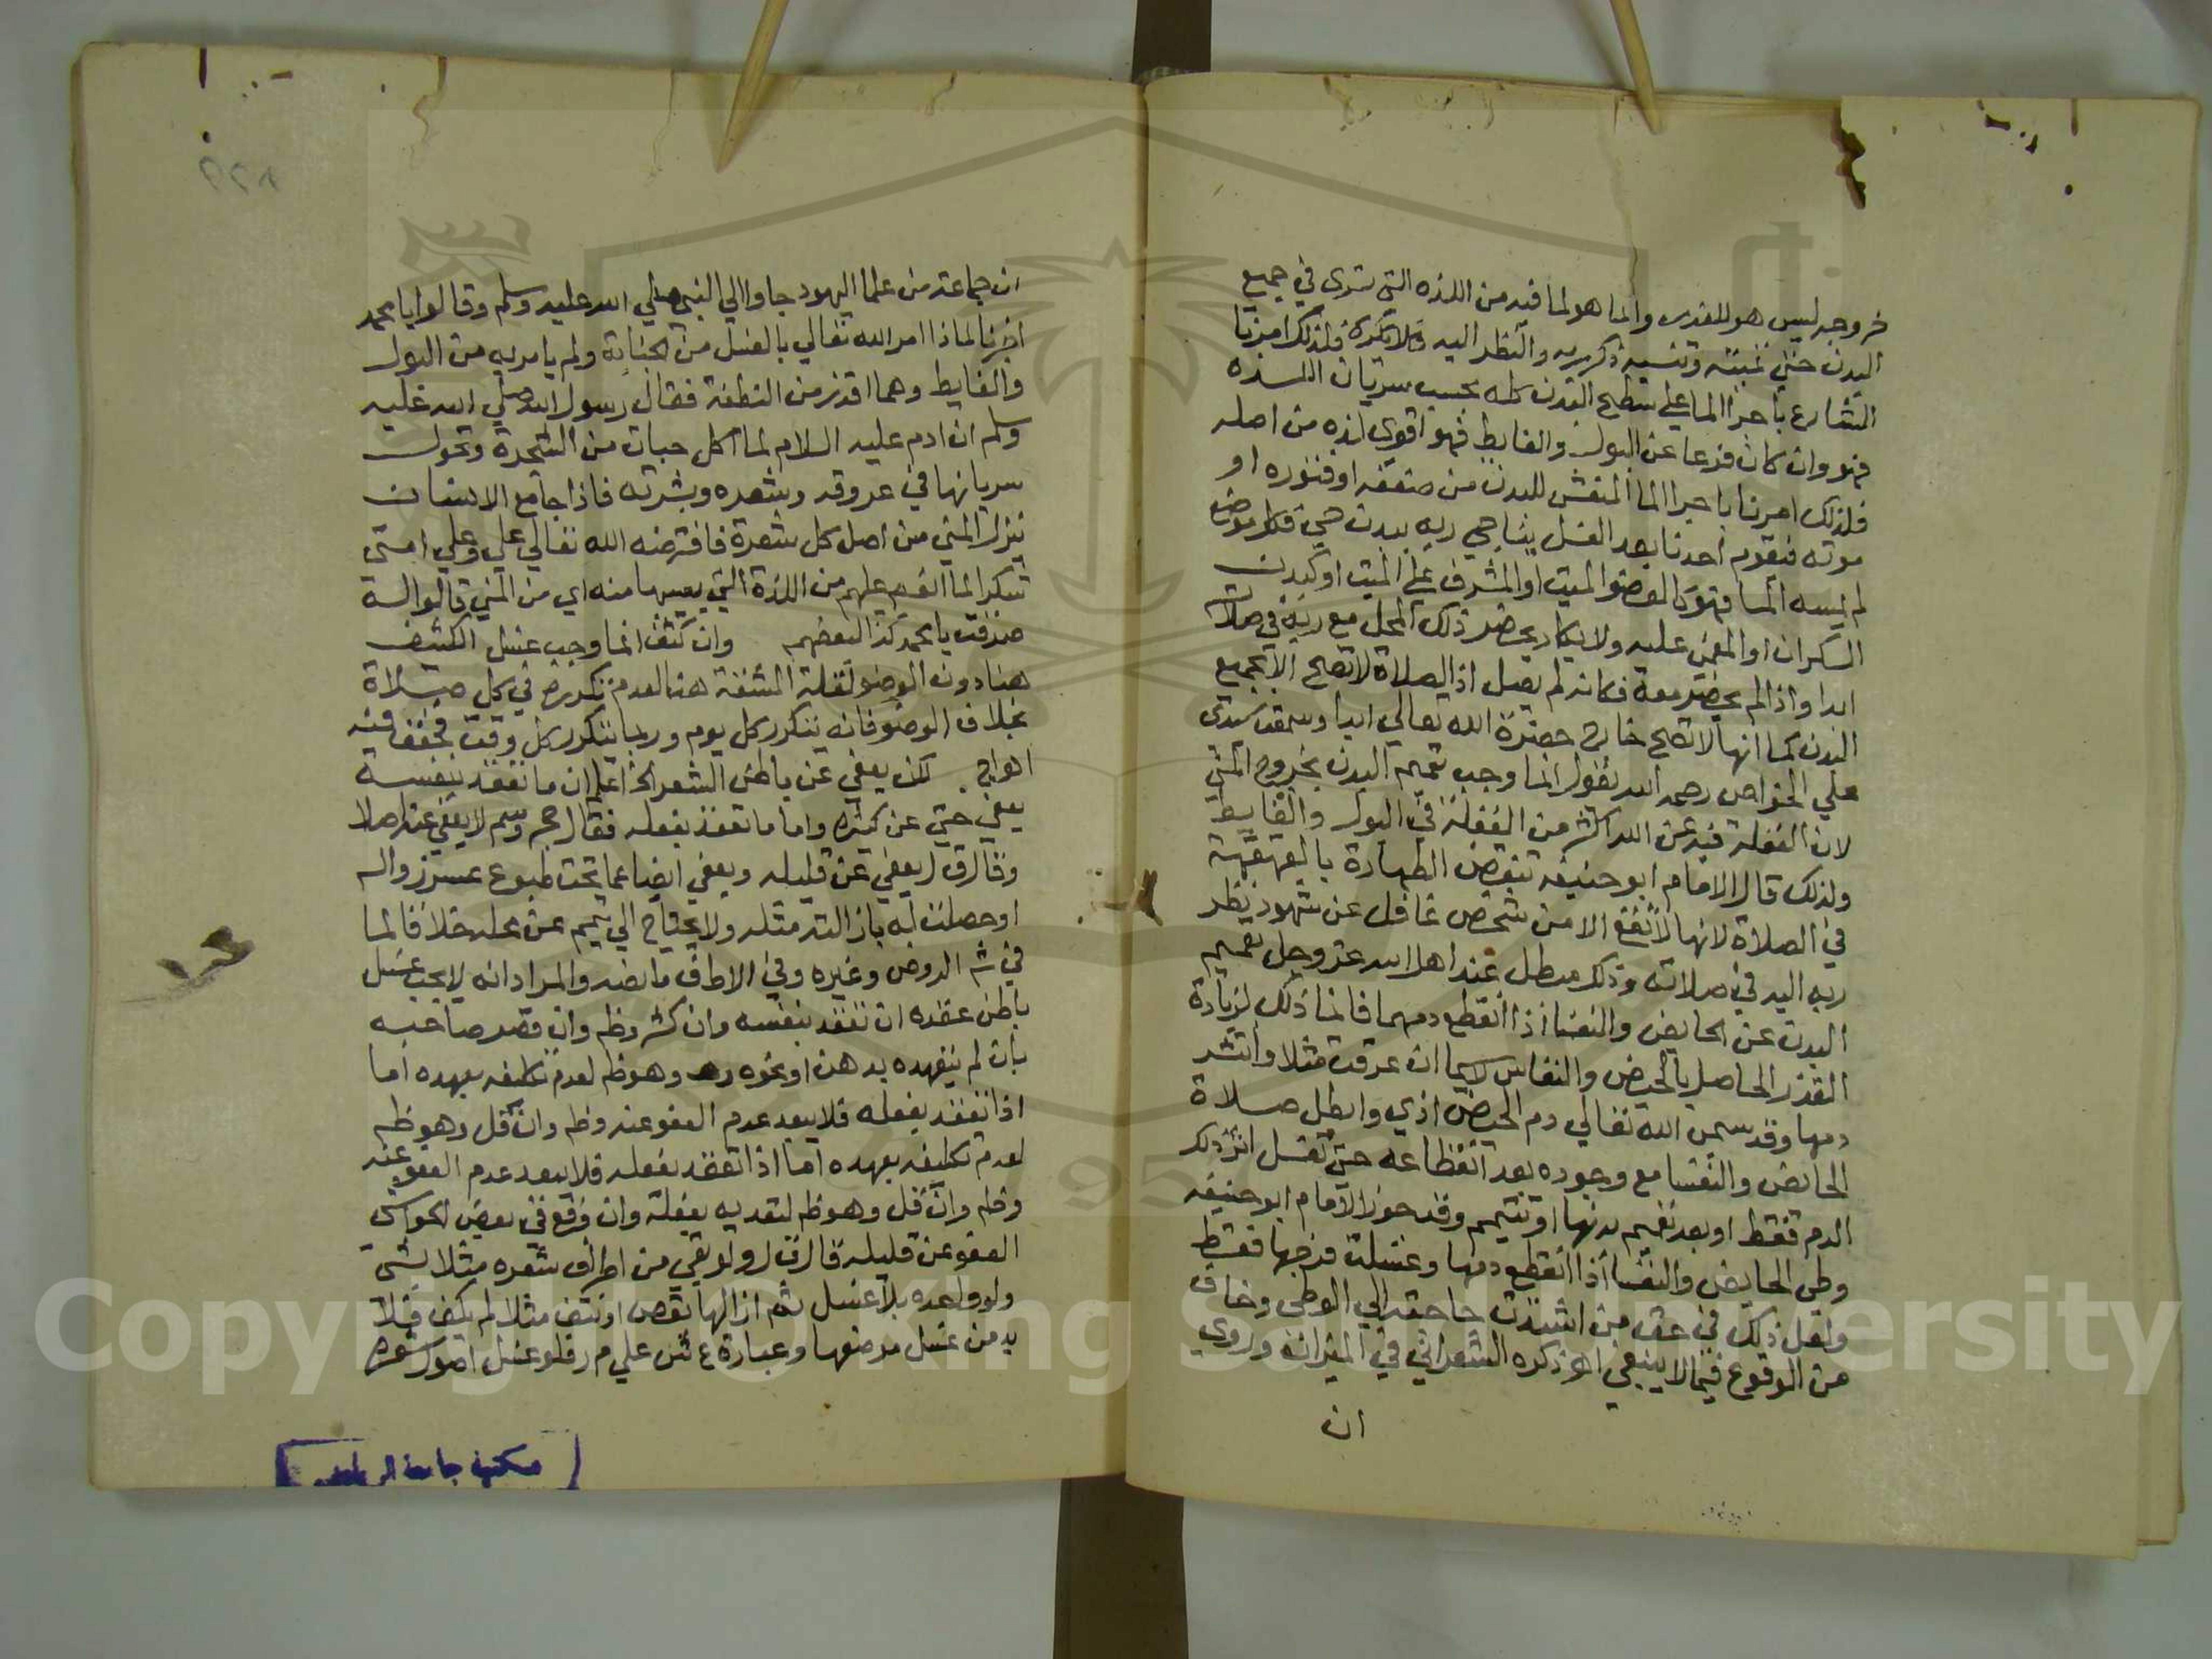 خروجه ليس هو للقذر وانما هو لما فيه من اللذه التي تسري في جميع
البدن حتي تميته وتنسيه ذكر ربه والنظر اليه فلذلك امرنا
الشارع باجرا الما علي سطح البدن كله بحسب سريان اللذه
فهو وان كان فرعا عن البول والغايط فهو اقوي لذه من اصله
فلذلك امرنا باجرا الما المنعش للبدن من ضعفه او فتوره او
موته فيقوم احدنا بعد الغسل يناجي ربه ببدن حي فكل موضع
لم يمسه الما فهو كالعضو الميت او المشرف علي الميت او كبدن
السكران او المغمي عليه ولا يكاد يحضر ذلك المحل مع ربه في صلاته
ابدا واذا لم يحضر معه فكانه لم يصل اذ الصلاة لا تصح الا بجميع
البدن كما انها لا تصح خارج حضرة الله تعالي ابدا وسمعت سيدي
علي الخواص رحمه الله يقول انما وجب تعميم البدن بخروج المني
لان الغفلة فيه عن الله اكثر من الغفلة في البول والغايط
ولذلك قال الامام ابو حنيفه تنقض الطهارة بالقهقهة
في الصلاة لانها لا تقع الا من شخص غافل عن شهود نظر
ربه اليه في صلاته وذلك مبطل عند اهل الله عز وجل تعميم
البدن عن الحايض والنفسا اذا انقطع دمهما فانما ذلك لزيادة
القذر الحاصل بالحيض والنفاس لاسيما ان عرقت مثلا وانتشر
دمها وقد سمي الله تعالي دم الحيض اذي وابطل صلاة
الحائض والنفسا مع وجوده بعد انقطاعه حتي تغسل اثر ذلك
الدم فقط او بعد تعميم بدنها او تتيمم وقد جوز الامام ابو حنيفه
وطي الحايض والنفسا اذا انقطع دمها وغسلت فرجها فقط
ولعل ذلك في حق من اشتدت حاجته الي الوطي وخاف
من الوقوع فيما لا ينبغي اهو ذكره الشعراني في الميزان وروي
ان
ان جماعة من علما اليهود جاوا الي النبي صلي الله عليه وسلم وقالوا يا محمد
اخبرنا لماذا امر الله تعالي بالغسل من الجنابة ولم يامر به من البول
والغايط وهما اقذر من النطفة فقال رسول الله صلي الله عليه
وسلم ان ادم عليه السلام لما اكل حبات من الشجرة وتحول
سريانها في عروقه وشعره وبشرته فاذا جامع الانسان
نزل المني من اصل كل شعرة فافترضه الله تعالي علي وعلي امتي
شكرا لما انعم عليهم من اللذة التي يصيبها منه اي من المني قالوا له
صدقت يا محمد كذا لبعضهم وان كثف انما وجب غسل الكثيف
هنا دون الوضو لقلة المشقة هنا لعدم تكرره في كل صلاة
بخلاف الوضو فانه يتكرر كل يوم وربما يتكرر كل وقت فخفف فيه
لكن يعفي عن باطن الشعر الخ اعلم ان ما تعقد بنفسه
يعفي حتي عن كثيره واما ما تعقد بفعله فقال حج وسم لا يعفي عنه اصلا
وقال ق ل يعفي عن قليله ويعفي ايضا عما تحت طبوع عسر زواله
او حصلت له بازالته مثله ولا يحتاج الي تيمم عن محله خلافا لما
في شم الروض وغيره وفي الاطف ما نصه والمراد انه لا يجب غسل
باطن عقده ان تعقد بنفسه وان كثر وظم وان قصر صاحبه
بان لم يتعهده بدهن او نحوه وهو ظم لعدم تكليفه بعهده اما
اذا تعقد بفعله فلا يبعد عدم العفو عنه وظم وان قل وهو ظم
لعدم تكليفه بعهده اما اذا تعقد بفعله فلا يبعد عدم العفو عنه
وظم وان قل وهو ظم لتعديه بفعله وان وقع في بعض الحواشي
العفو عن قليله قال ق ل ولو بقي من اطراف شعره مثلا شي
ولو واحده بلا غسل ثم ازالها بقص او نتف مثلا لم يكف فلا
بد من غسل موضعها وعبارة ع ش علي م ر فلو غسل اصول شعره
مكتبة جامعة الرياض
Copyright © King Saud University